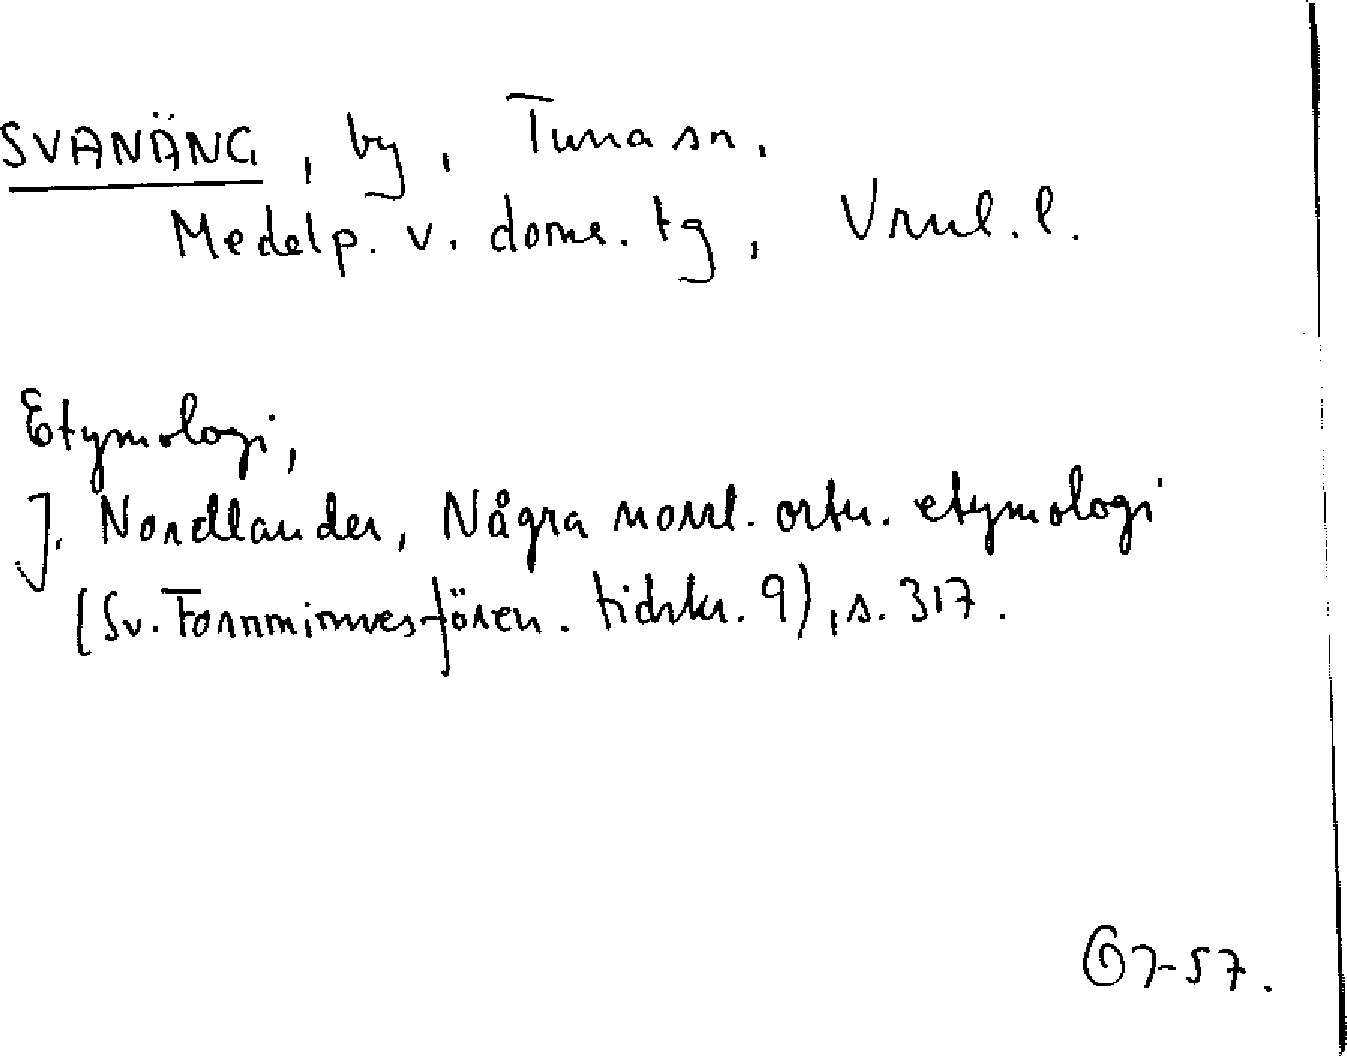 SVANÄNG, by, Tuna sn.
Medelp. v. doms. tg, Vrnl. l.
Etymologi,
J. Nordlander, Några norrl. ortn. etymologi
(Sv. Fornminnesfören. tidskr. 9), s. 317.
7-57.